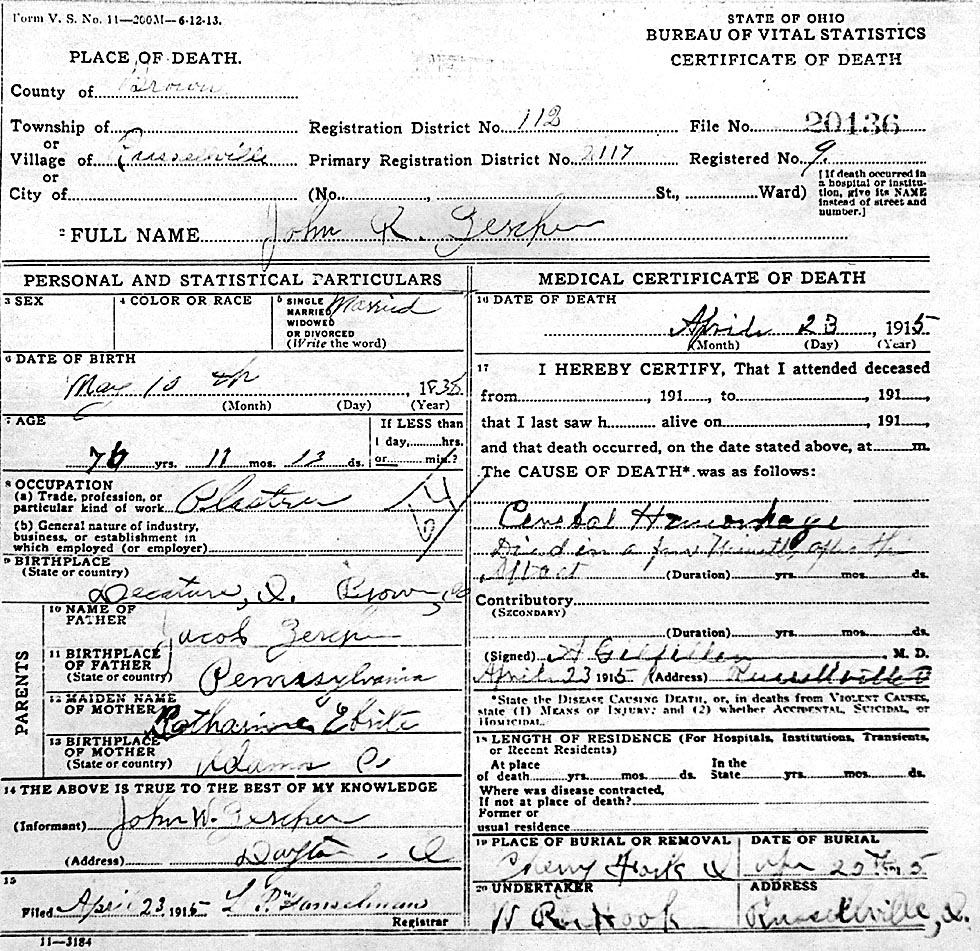 Form V. S. No. 11—200M—6-12-13.
STATE OF OHIO
BUREAU OF VITAL STATISTICS
CERTIFICATE OF DEATH
PLACE OF DEATH.
County of Brown
Township of
or
Village of Russellville
or
City of
Registration District No. 112
File No. 20136
Primary Registration District No. 2117
Registered No. 9.
(No. , St., Ward)
[If death occurred in
a hospital or institu-
tion, give its NAME
instead of street and
number.]
2 FULL NAME John R. Zercher
PERSONAL AND STATISTICAL PARTICULARS
3 SEX
4 COLOR OR RACE
5 SINGLE
MARRIED
WIDOWED
OR DIVORCED
(Write the word)
Married
6 DATE OF BIRTH
May 10 th, 1838
(Month) (Day) (Year)
7 AGE
76 yrs. 11 mos. 13 ds.
If LESS than
1 day, hrs.
or min.?
8 OCCUPATION
(a) Trade, profession, or
particular kind of work Plastrer
(b) General nature of industry,
business, or establishment in
which employed (or employer)
9 BIRTHPLACE
(State or country)
Decature, O. Brown, Co
PARENTS
10 NAME OF
FATHER
Jacob Zercher
11 BIRTHPLACE
OF FATHER
(State or country)
Pennssylvania
12 MAIDEN NAME
OF MOTHER
Katharine Ebrite
13 BIRTHPLACE
OF MOTHER
(State or country)
Adams Co
14 THE ABOVE IS TRUE TO THE BEST OF MY KNOWLEDGE
(Informant) John W. Zercher
(Address) Dayton O
15
Filed April 23 1915 L P
Registrar
11—3184
MEDICAL CERTIFICATE OF DEATH
16 DATE OF DEATH
April 23, 1915
(Month) (Day) (Year)
17 I HEREBY CERTIFY, That I attended deceased
from , 191 , to , 191 ,
that I last saw h alive on , 191 ,
and that death occurred, on the date stated above, at m.
The CAUSE OF DEATH* was as follows:
Cerebal Hemorhage
Died in a few after the
(Duration) yrs. mos. ds.
Contributory
(SECONDARY)
(Duration) yrs. mos. ds.
(Signed) A Gilfillen, M. D.
April 23 1915 (Address) Russellville O
*State the DISEASE CAUSING DEATH, or, in deaths from VIOLENT CAUSES,
state (1) MEANS OF INJURY; and (2) whether ACCIDENTAL, SUICIDAL, or
HOMICIDAL.
18 LENGTH OF RESIDENCE (For Hospitals, Institutions, Transients,
or Recent Residents)
At place
of death yrs. mos. ds.
In the
State yrs. mos. ds.
Where was disease contracted,
If not at place of death?
Former or
usual residence
19 PLACE OF BURIAL OR REMOVAL
Cherry Fork O
DATE OF BURIAL
Apr 25 1915
20 UNDERTAKER
W R Hook
ADDRESS
Russellville, O.